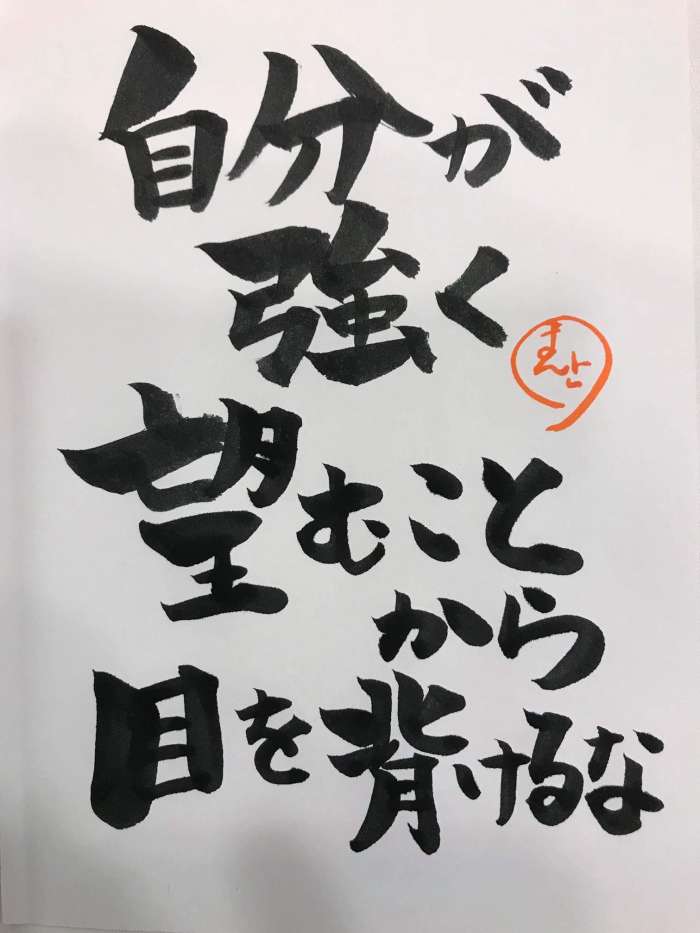 自分が
強く
まんと
望むこと
から
目を背けるな